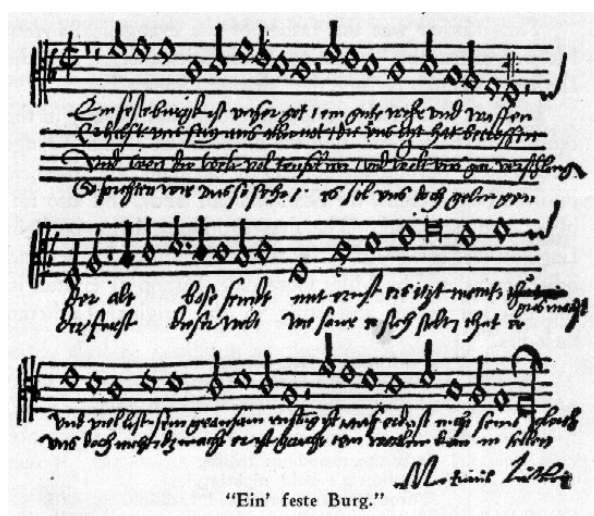 Ein feste burgk ist unser got ein gute wehr und waffen
uns frey aus die uns itzt hat betroffen
Und wen die welt vol teuffel wer und wolt uns gar verschling
So furchten wir uns so sehr es sol uns doch gelingen
der alt bose feindt mit ernst ers itzt meint
gros macht
der furst dieser welt wie saur er sich stelt thut er
und viel list sein grausam rustung ist auf erd ist nicht seins gleich
uns doch nicht macht er ist gericht ein wortlein kan in fellen
Martinus Luther
"Ein' feste Burg."